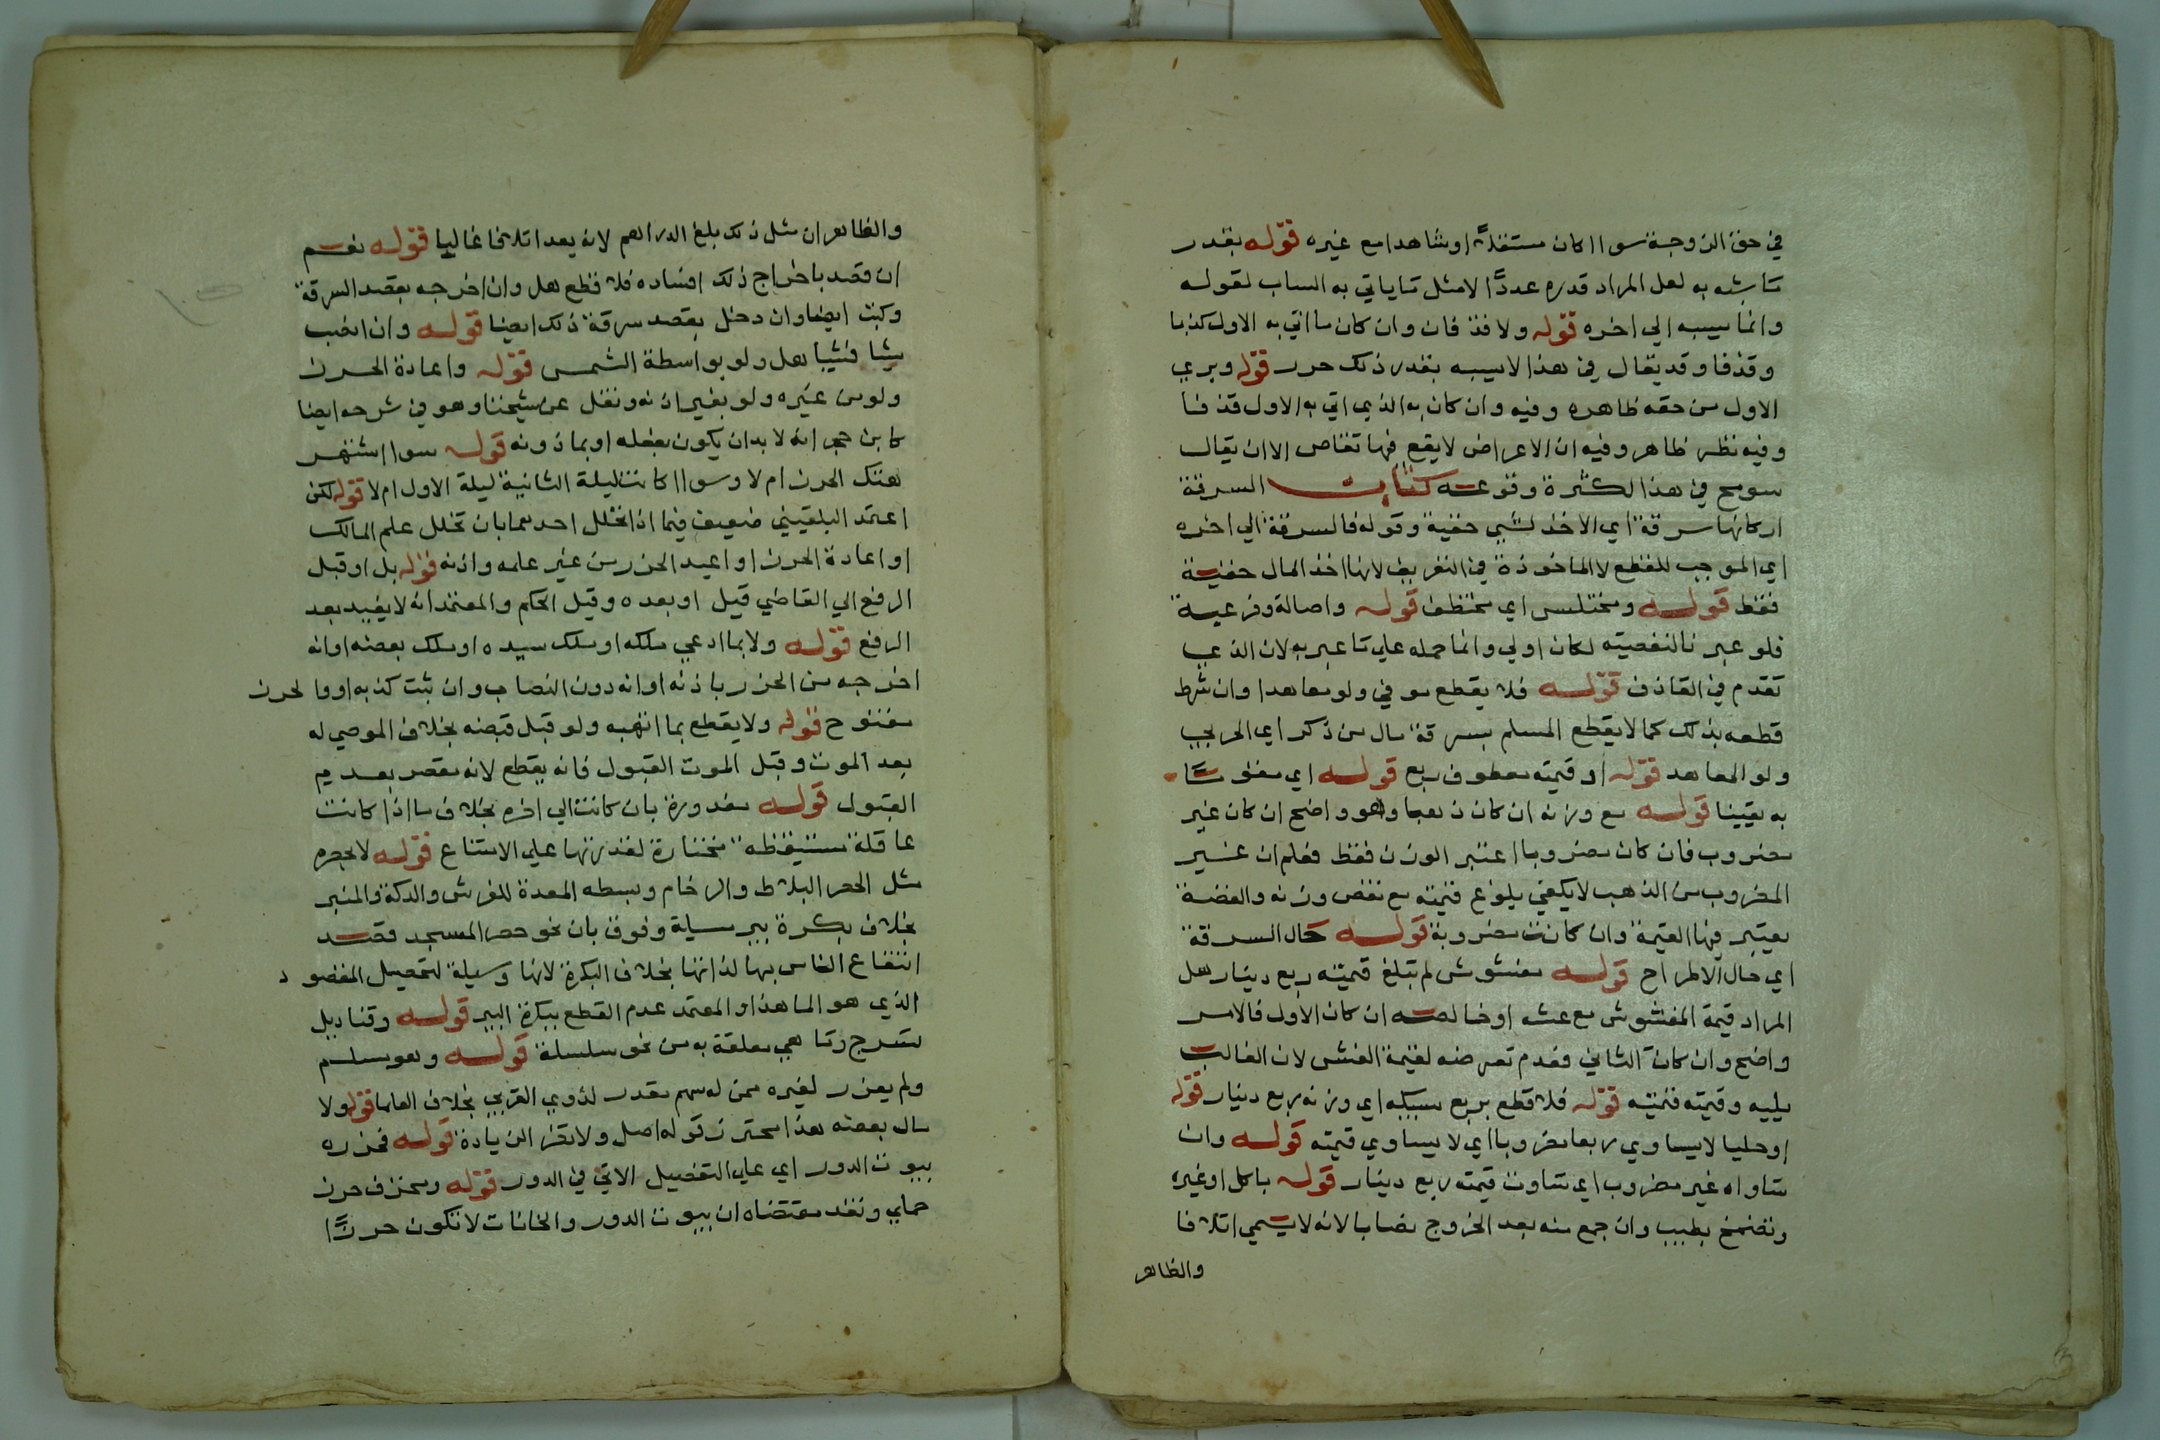 في حق الزوجة سواا كان مستقلاً اوشاهدا مع غيره قوله بقدر
ما شبه به لعل المراد قدره عددًا لامثل ما ياتي به الساب لقوله
وانما يسبه الي اخره قوله ولا قذفان وان كان ما اتي به الاول كذبا
وقذفا وقد يقال في هذا لا يسبه بقدر ذلك حرر قوله وبري
الاول من حقه ظاهره وفيه وان كان به الذي اتي به الاول قذفا
وفيه نظر ظاهر وفيه ان الاعراض لا يقع فيها تقاص الا ان يقال
سومح في هذا لكثرة وقوعه كتاب السرقة
اركانها سرقة اي الاخذ لشي خفية وقوله فالسرقة الي اخره
اي الموجب للقطع لا الماخوذة في التعريف لانها اخذ المال خفية
فقط قوله ومختلس اي مختطف قوله واصالة وفرعية
فلو عبر بالنقصيته لكان اولي وانما حمله علي ما عبر به لان الذي
تقدم في القاذف قوله فلا يقطع موفي ولو معاهدا وان شرط
قطعه بذلك كما لا يقطع المسلم بسرقة مال من ذكر اي الحربي
ولو المعاهد قوله او قيمته معطوف ربع قوله اي مقوما
به يقينا قوله مع وزنه ان كان ذهبا وهو واضح ان كان غير
مضروب فان كان مضروبا اعتبر الوزن فقط فعلم ان غير
المضروب من الذهب لا يكفي بلوغ قيمته مع نقص وزنه والفضة
يعتبر فيها القيمة وان كانت مضروبة قوله حال السرقة
اي حال الاخراج قوله مغشوش لم تبلغ قيمته ربع دينار هل
المراد قيمة المغشوش مع غشه اوخالصه ان كان الاول فالامر
واضح وان كان الثاني فقدم تعرضه لقيمة الغش لان الغالب
يليه وقيمته قيمته قوله فلا قطع بربع سبيكه اي وزنه ربع دينار قوله
اوحليا لا يساوي ربعا مضروبا اي لا يساوي قيمته قوله وان
ساواه غير مضروب اي ساوت قيمته ربع دينار قوله باكل اوغيره
وتضمخ بطيب وان جمع منه بعد الخروج نصابا لانه لا يسمي اتلافا
والظاهر
والظاهر ان مثل ذلك بلع الدراهم لانه يعد اتلافا غالبا قوله نعم
ان قصد باخراج ذلك افساده فلا قطع هل وان اخرجه بقصد السرقة
وكتب ايضا وان دخل بقصد سرقة ذلك ايضا قوله وان انصب
شيا فشيا هل ولو بواسطة الشمس قوله واعادة الحرز
ولو من غيره ولو بغير اذنه ونقل عن شيخنا وهو في شرحه ايضا
كابن حجر انه لا بد ان يكون بفعله اوبماذونه قوله سواا اشتهر
هتك الحرز ام لا وسواا كانت ليلة الثانية ليلة الاول ام لا قوله لكن
اعتمد البلقيني ضعيف فيما اذا تخلل احدهما بان تخلل علم المالك
او اعادة الحرز او اعيد الحرز من غير علمه واذنه قوله بل اوقبل
الرفع الي القاضي قبل اوبعده وقبل الحكم والمعتمد انه لا يفيد بعد
الرفع قوله ولا بما ادعي ملكه اوملك سيده اوملك بعضه اوانه
اخرجه من الحرز باذنه اوانه دون النصاب وان ثبت كذبه اووالحرز
مفتوح قوله ولا يقطع بما اتهبه ولو قبل قبضه بخلاف الموصي له
بعد الموت وقبل القبول فانه يقطع لانه مقصر بعدم
القبول قوله مقدورة بان كانت الي اخره بخلاف ما اذا كانت
عاقلة مستيقظة مختارة لقدرتها علي الامتناع قوله لا حصره
مثل الحصر البلاط والرخام وبسطه المعدة للفرش والدكة والمنبر
بخلاف بكرة بير مسبلة وفرق بان نحو حصر المسجد قصد
انتفاع الناس بها لذاتها بخلاف البكرة لانها وسيلة لتحصيل المقصود
الذي هو الما هذا والمعتمد عدم القطع ببكرة البير قوله وقناديل
تسرج وما هي معلقة به من نحو سلسلة قوله وهو مسلم
ولم يعزر لغيره ممن له سهم مقدر لذوي القربي بخلاف العلما قوله ولا
مال بعضه هذا محترز قوله اصل ولا تضر الزيادة قوله فحرزه
بيوت الدور اي علي التفصيل الاتي في الدور قوله ومخزن حرز
حلي ونقد مقتضاه ان بيوت الدور والخانات لا تكون حرزًا